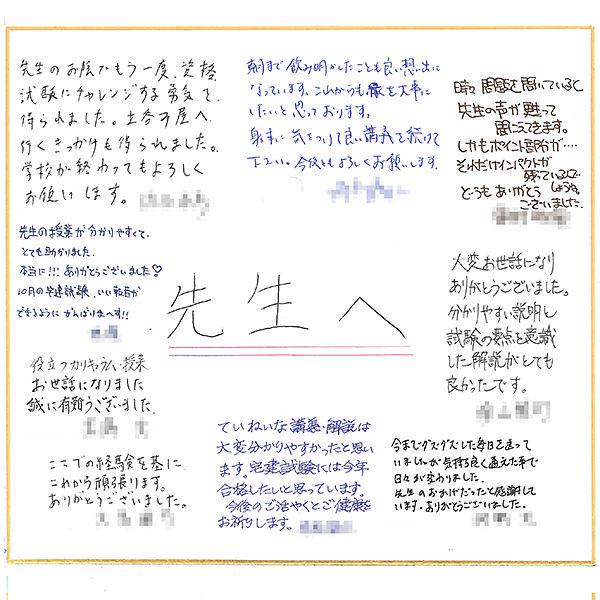 先生のお陰でもう一度、資格
試験にチャレンジする勇気を
得られました。土呑す屋へ
行くきっかけも得られました。
学校が終わってもよろしく
お願いします。
朝まで飲み明かしたことも良い想い出に
なっています。これからも縁を大事に
したいと思っております。
身体に気をつけて良い講義を続けて
下さい。今後ともよろしくお願いします。
時々問題を聞いていると
先生の声が甦って
聞こえてきます。
しかもポイント部分が‥‥
それだけインパクトが
残っているので
どうもありがとう
ございました。
先生の授業が分かりやすくて、
とても助かりました。
本当に!!!ありがとうございました♡
10月の宅建試験、いい報告が
できるようにがんばりまーす!!
先生へ
大変お世話になり
ありがとうございました。
分かりやすい説明と
試験の要点を意識
した解説がとても
良かったです。
役立つカリキュラム、授業
お世話になりました
誠に有難うございました。
ていねいな講義・解説は
大変分かりやすかったと思い
ます。宅建試験には今年
合格したいと思っています。
今後のご活やくとご健康を
お祈りします。
ここでの経験を基に
これから頑張ります。
ありがとうございました。
今までグズグズした毎日を送って
いましたが気持ち良く通えた事で
日々が変わりました。
先生のおかげだったと感謝して
います。ありがとうございました。